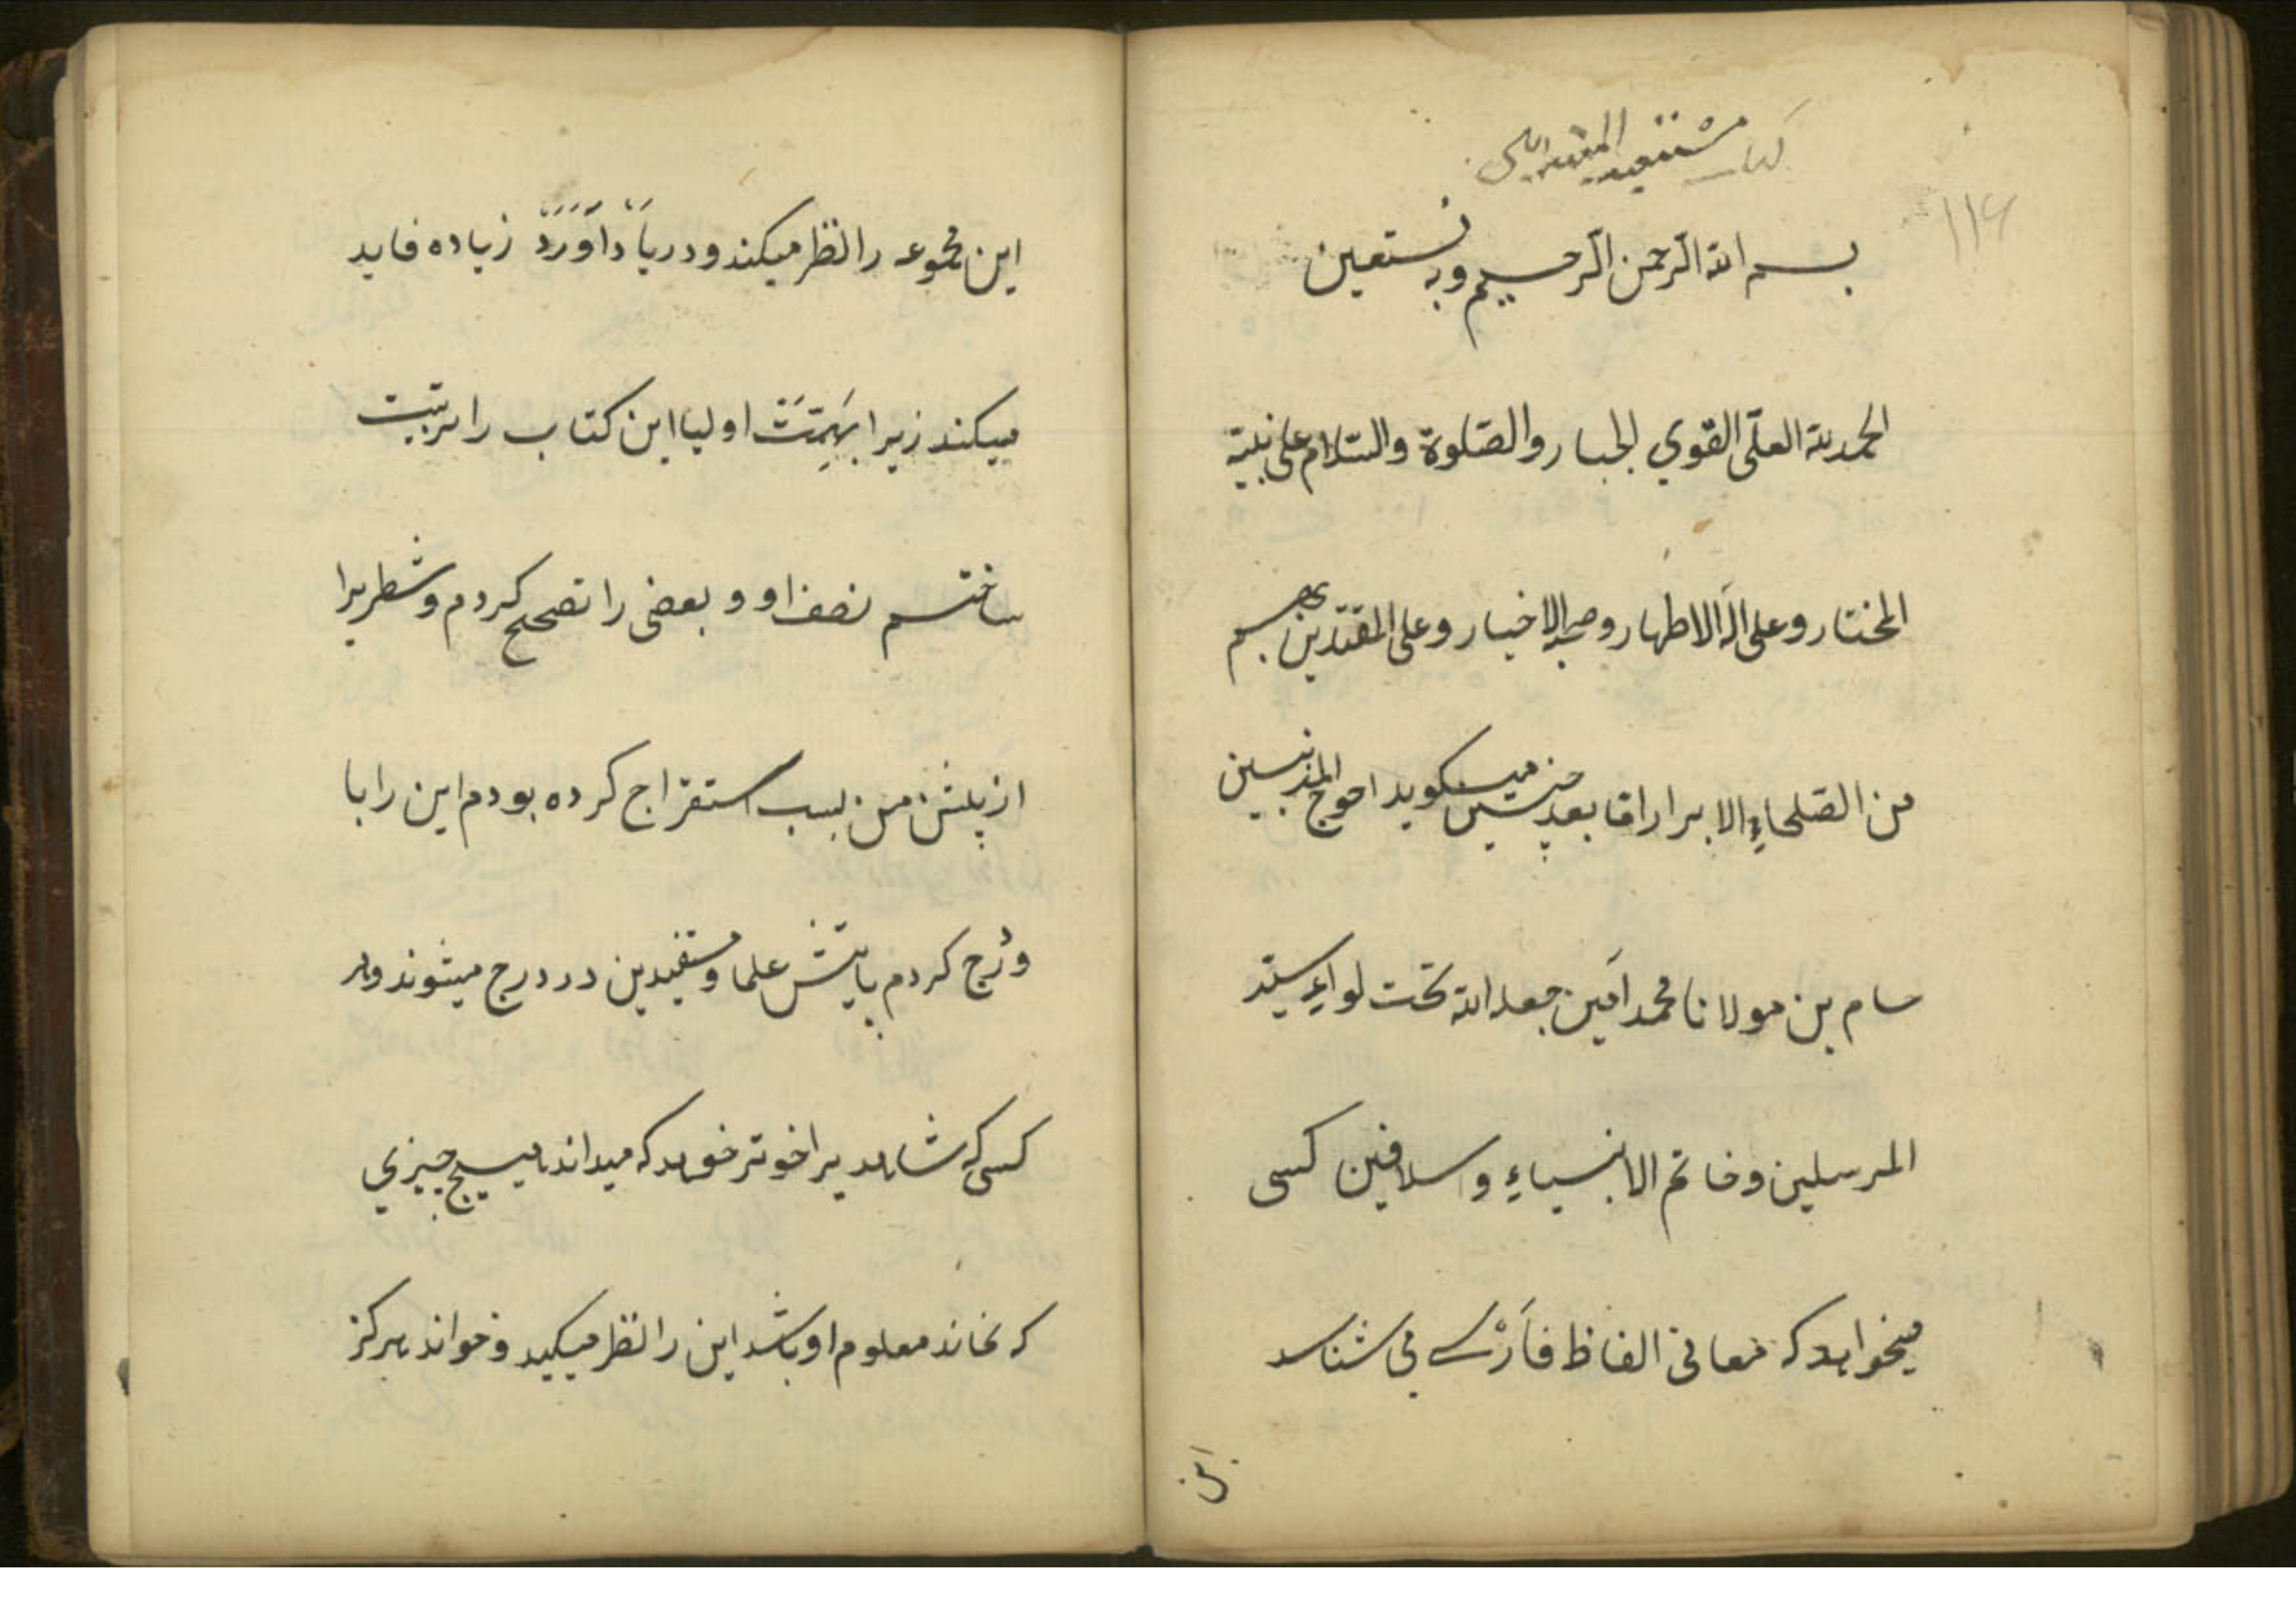 كتاب مستفيد المبتدئين
۱۱۶
بسم الله الرحمن الرحيم وبه نستعين
الحمد لله العلّی القوي الجبار والصّلوة والسّلام علی نبیّه
المختار وعلی اله الاطهار وصحبه الاخیار وعلی المقتدین بهم
من الصّلحاءِ الابرار اما بعد چنین میکوید احوج المذنبین
سام بن مولانا محمد امین جعله الله تحت لواءِ سیّد
المرسلین وخاتم الانبیاءِ وسلافین کسی
میخواهد که معانی الفاظ فَارْسے می شناسد
این
این مجموعه را نظر میکند ودر یَادْ اَوَرَدْ زیاده فاید
میکند زیرا بهِمَتْ اولیا این کتاب را تربیت
ساختم نصف او و بعضی را تصحیح کردم وشطریرا
از پلش من بسبب استقراج کرده بودم این را با
وَرْج کردم پایتش علما ومستفیدین در درج میشوند ودر
کسی که شاهدیرا خوتر خوهد که میداند هیچ چیزي
که نماند معلوم او باشد این را نظر میکید وخواند هرکز